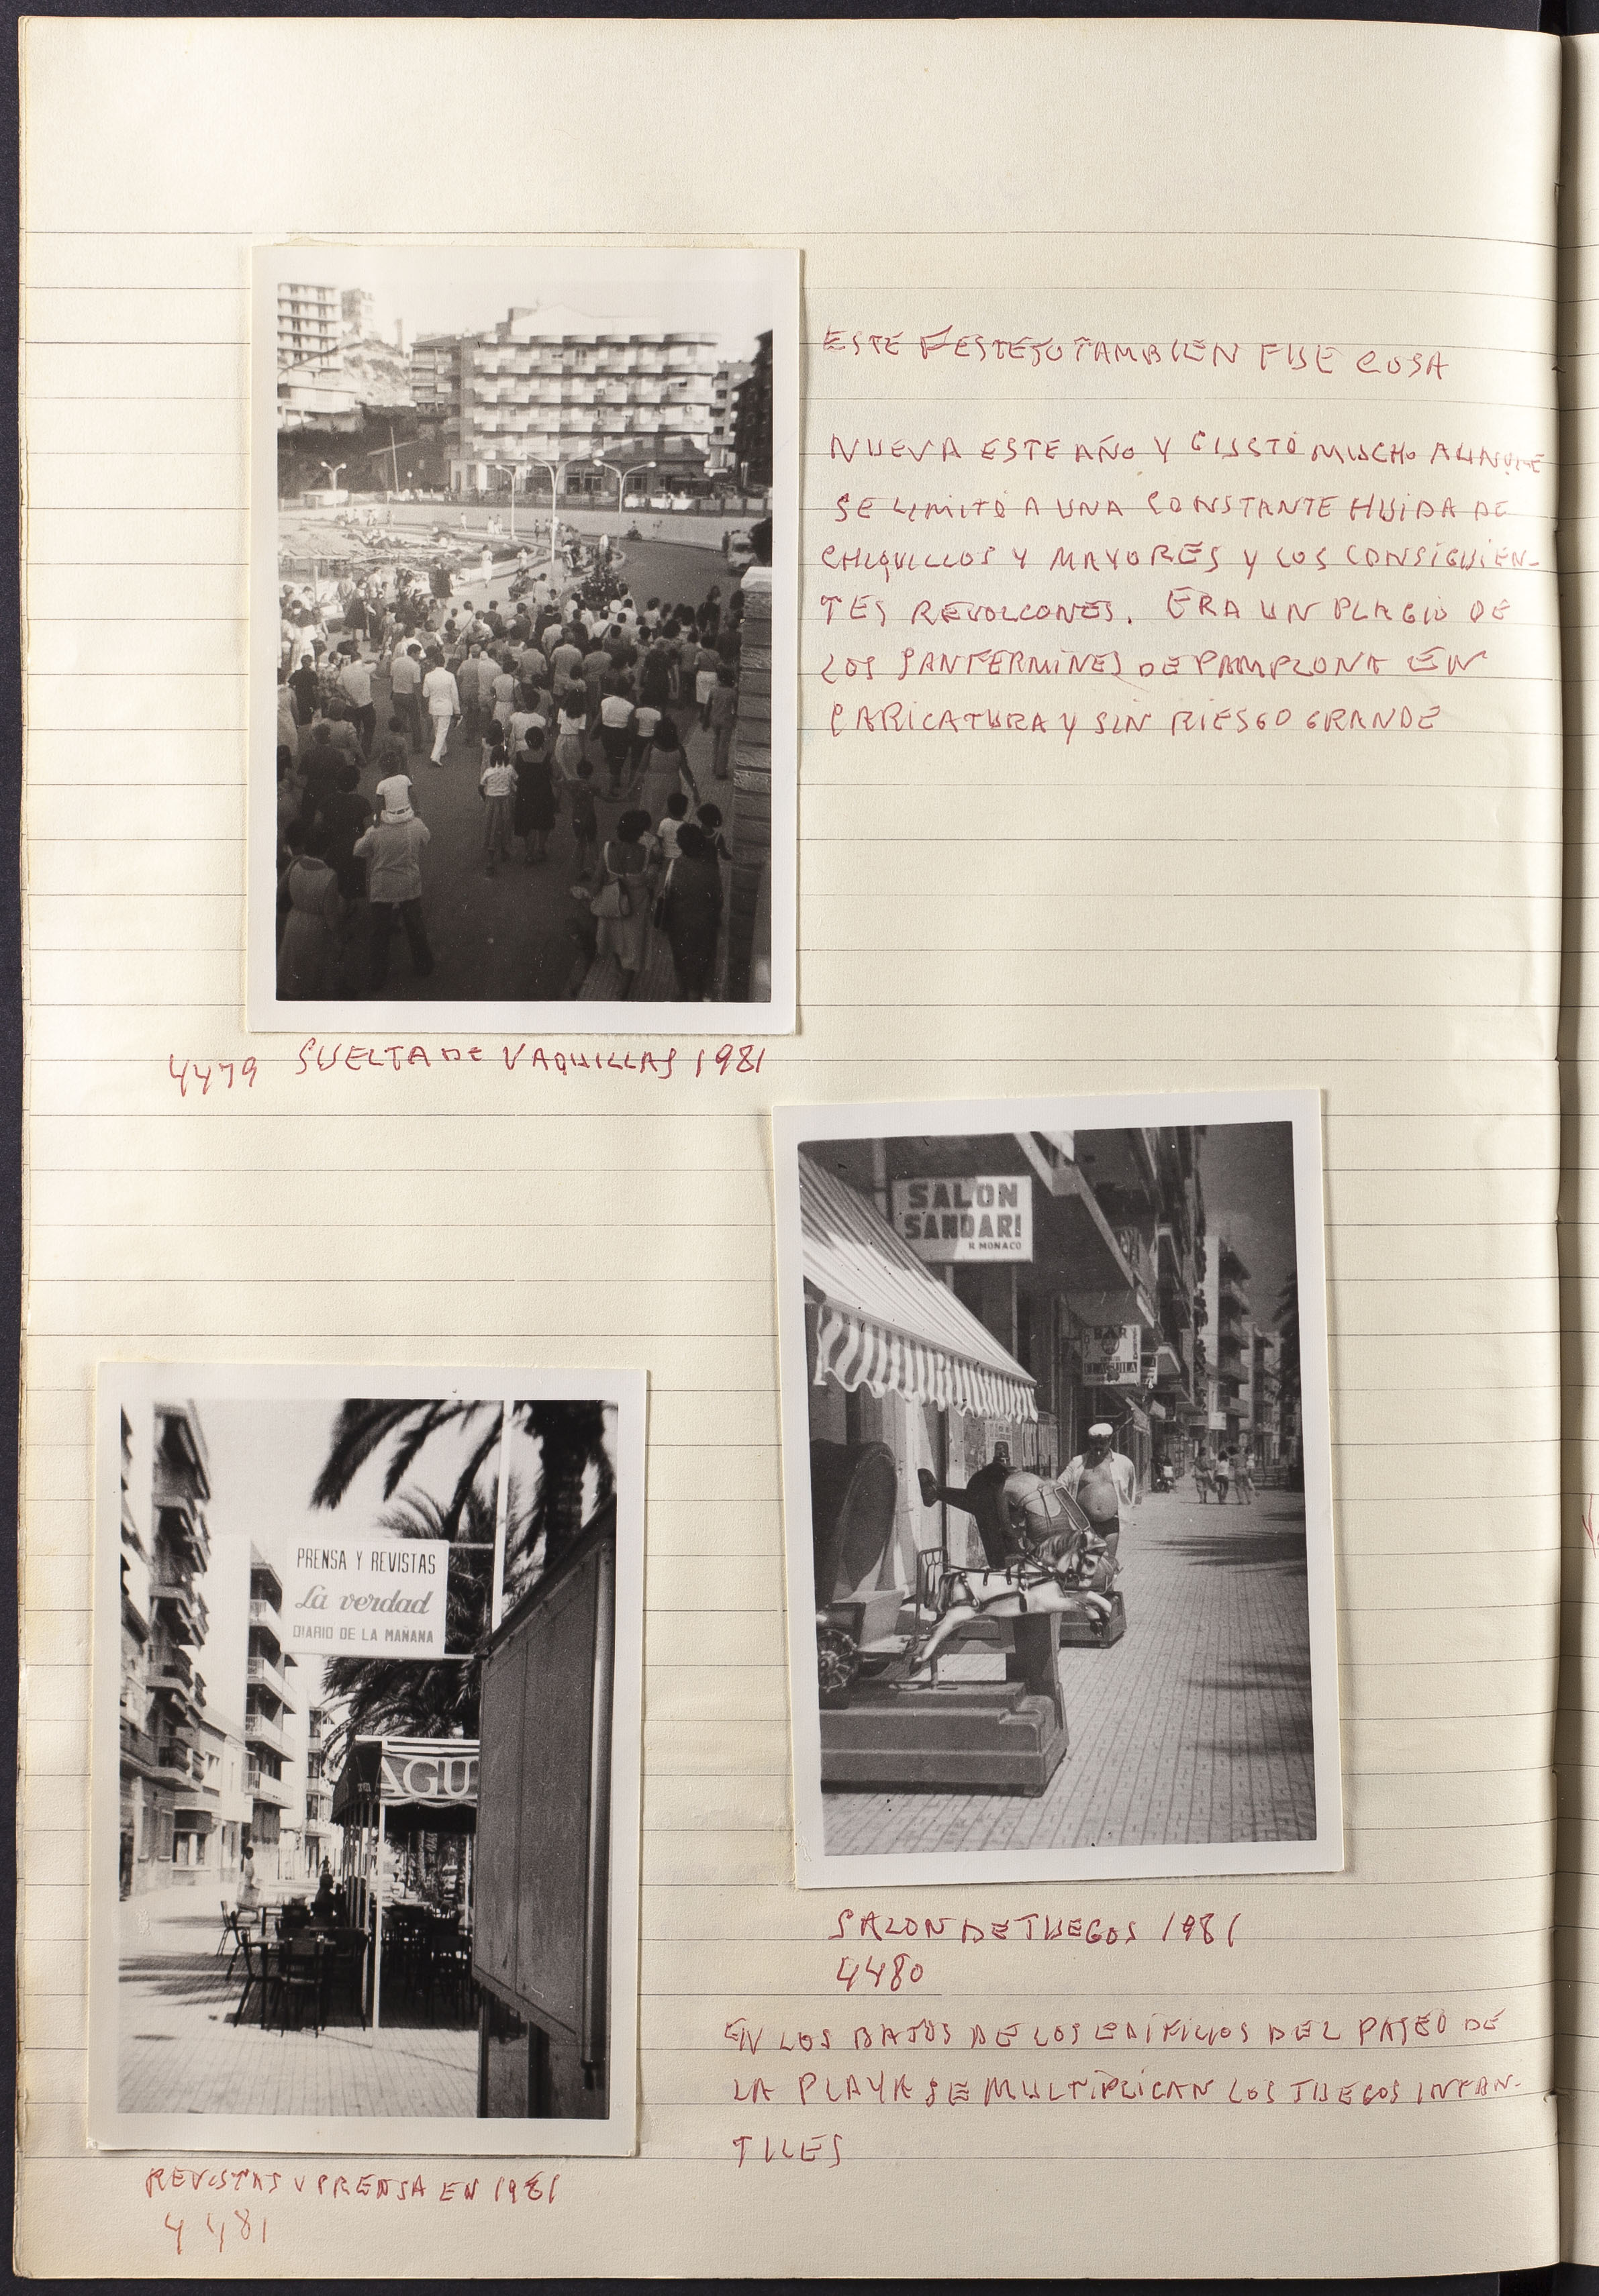 ESTE FESTEJO TAMBIEN FUE COSA
NUEVA ESTE AÑO Y GUSTÓ MUCHO AUNQUE
SE LIMITÓ A UNA CONSTANTE HUIDA DE
CHIQUILLOS Y MAYORES Y LOS CONSIGUIEN-
TES REVOLCONES. ERA UN PLAGIO DE
LOS SANFERMINES DE PAMPLONA EN
CARICATURA Y SIN RIESGO GRANDE
4479 SUELTA DE VAQUILLAS 1981
SALON
SANDARI
R. MONACO
BAR
PRENSA Y REVISTAS
La verdad
DIARIO DE LA MAÑANA
AGU
SALON DE JUEGOS 1981
4480
EN LOS BAJOS DE LOS EDIFICIOS DEL PASEO DE
LA PLAYA SE MULTIPLICAN LOS JUEGOS INFAN-
TILES
REVISTAS Y PRENSA EN 1981
4481